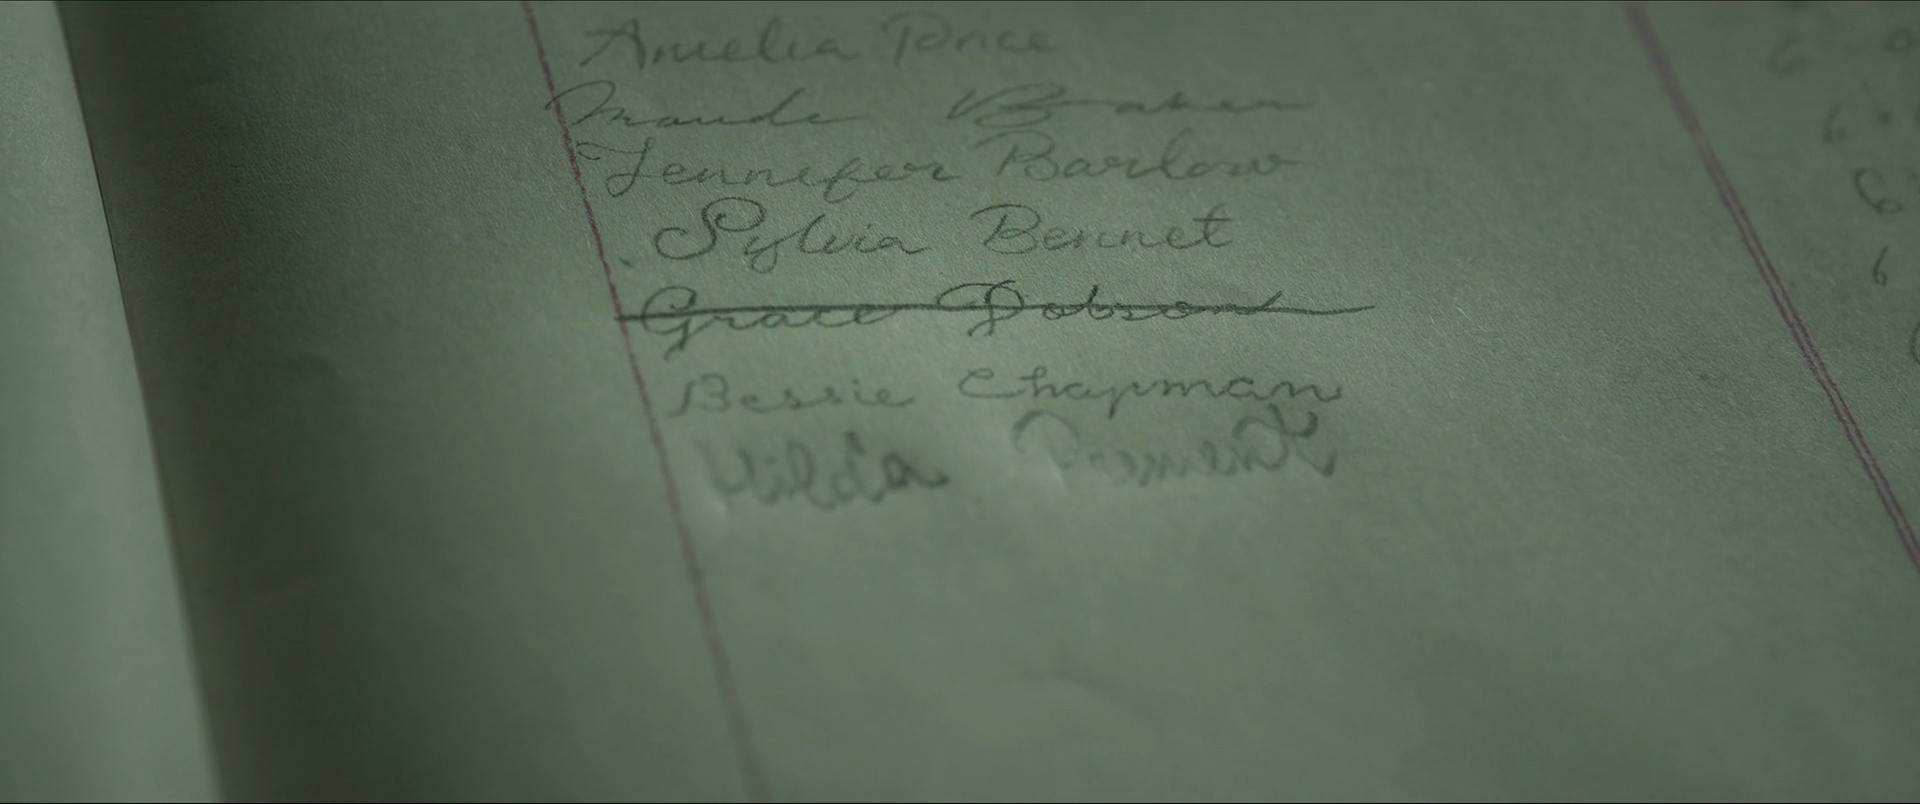 Amelia Price
Maude Baker
Jennifer Barlow
Sylvia Bennet
Grace Dobson
Bessie Chapman
Hilda
6
6
6
6